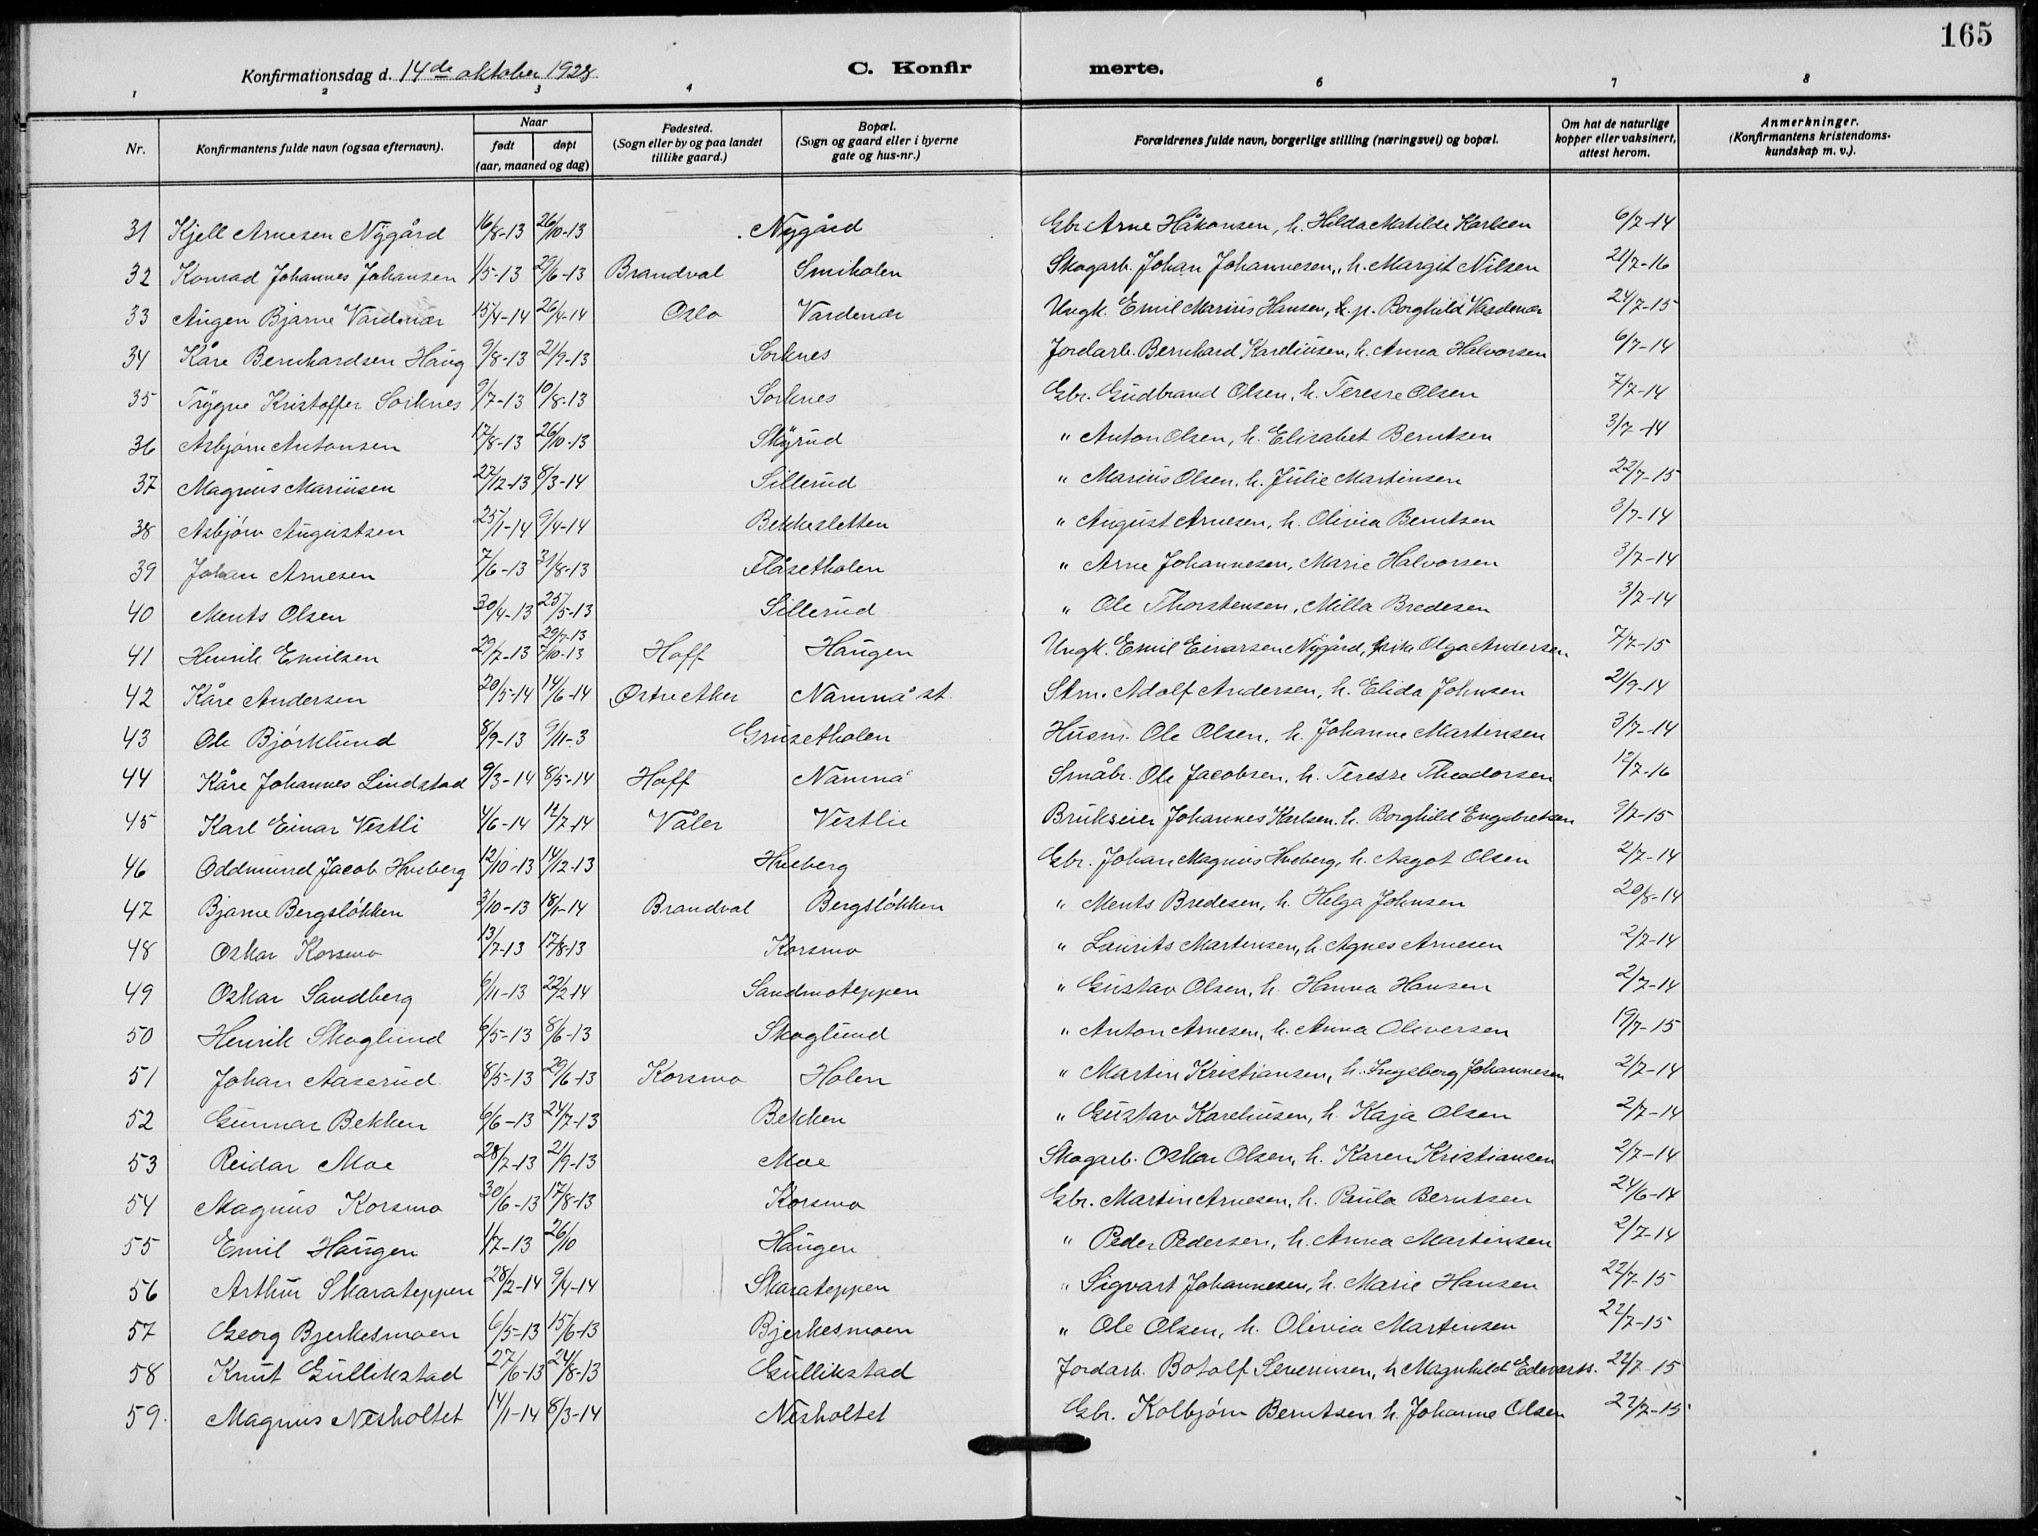 165
Konfirmationsdag d. 14de oktober 1928
C. Konfirmerte.
1 2 3 4 6 7 8
Nr.
Konfirmantens fulde navn (ogsaa efternavn).
Naar
født døpt
(aar, maaned og dag)
Fødested.
(Sogn eller by og paa landet
tillike gaard.)
Bopæl.
(Sogn og gaard eller i byerne
gate og hus-nr.)
Forældrenes fulde navn, borgerlige stilling (næringsvei) og bopæl.
Om hat de naturlige
kopper eller vaksinert,
attest herom.
Anmerkninger.
(Konfirmantens kristendoms-
kundskap m. v.).
31 Kjell Arnesen Nygård 16/8-13 26/10-13 Nygård Gbr. Arne Håkonsen, h. Hilda Matilde Karlsen 6/7-14
32 Konrad Johannes Johansen 1/5-13 29/6-13 Brandval Smiholen Skogarb. Johan Johannesen, h. Margit Nilsen 21/7-16
33 Augen Bjarne Vardenær 15/4-14 26/4-14 Oslo Vardenær Ungk. Emil Marius Hansen, p. Borghild Vardenær 24/7-15
34 Kåre Bernhardsen Haug 9/8-13 21/9-13 Sorknes Jordarb. Bernhard Kareliusen, h. Anna Halvorsen 6/7-14
35 Trygve Kristoffer Sorknes 9/7-13 10/8-13 Sorknes Gbr. Gudbrand Olsen, h. Terese Olsen 7/7-14
36 Asbjørn Antonsen 17/8-13 26/10-13 Skyrud " Anton Olsen, h. Elisabet Berntsen 3/7-14
37 Magnus Mariusen 27/12-13 8/3-14 Sillerud " Marius Olsen, h. Julie Martinsen 22/7-15
38 Asbjørn Augustsen 25/1-14 9/4-14 Bekkesletten " August Arnesen, h. Olivia Berntsen 3/7-14
39 Johan Arnesen 7/6-13 31/8-13 Flåsetholen " Arne Johannesen, Marie Halvorsen 3/7-14
40 Ments Olsen 30/4-13 25/5-13 Sillerud " Ole Thorstensen, Milla Bredesen 3/7-14
41 Henrik Emilsen 29/7-13 29/7-13 7/10-13 Hoff Haugen Ungk. Emil Einarsen Nygård, Olga Andersen 7/7-15
42 Kåre Andersen 20/5-14 14/6-14 Østre Aker Namnå st. Stm. Adolf Andersen, h. Elida Johnsen 21/9-14
43 Ole Bjørklund 8/9-13 9/11-3 Grusetholen Husm. Ole Olsen, h. Johanne Martinsen 3/7-14
44 Kåre Johannes Lindstad 9/3-14 8/5-14 Hoff Namnå Småbr. Ole Jacobsen, h. Terese Theodorsen 12/7-16
45 Karl Einar Vestli 4/6-14 12/7-14 Våler Vestlie Brukseier Johannes Karlsen, h. Borghild Engebretsen 9/7-15
46 Oddmund Jacob Hveberg 12/10-13 14/12-13 Hveberg Gbr. Johan Magnus Hveberg, h. Aagot Olsen 2/7-14
47 Bjarne Bergsløkken 3/10-13 18/1-14 Brandval Bergsløkken " Ments Bredesen, h. Helga Johnsen 20/8-14
48 Oskar Korsmo 13/7-13 17/8-13 Korsmo " Laurits Martinsen, h. Agnes Arnesen 2/7-14
49 Oskar Sandberg 6/11-13 22/2-14 Sandmoteppen " Gustav Olsen, h. Hanna Hansen 2/7-14
50 Henrik Skoglund 6/5-13 8/6-13 Skoglund " Anton Arnesen, h. Anna Oliversen 19/7-15
51 Johan Aaserud 8/5-13 29/6-13 Korsmo Holen " Martin Kristiansen, h. Ingeborg Johannesen 2/7-14
52 Gunnar Bekken 6/6-13 24/7-13 Bekken " Gustav Kareliusen, h. Kaja Olsen 2/7-14
53 Reidar Moe 28/7-13 21/9-13 Moe Skogarb. Oskar Olsen, h. Karen Kristiansen 2/7-14
54 Magnus Korsmo 30/6-13 17/8-13 Korsmo Gbr. Martin Arnesen, h. Paula Berntsen 24/6-14
55 Emil Haugen 1/7-13 26/10 Haugen " Peder Pedersen, h. Anna Martinsen 2/7-14
56 Arthur Skarateppen 28/2-14 9/4-14 Skarateppen " Sigvart Johannesen, h. Marie Hansen 22/7-15
57 Georg Bjerkesmoen 6/5-13 15/6-13 Bjerkesmoen " Ole Olsen, h. Olivia Martinsen 22/7-15
58 Knut Gullikstad 27/6-13 24/8-13 Gullikstad Jordarb. Botolf Severinsen, h. Magnhild Edvarts. 22/7-15
59. Magnus Nesholtet 14/1-14 8/3-14 Nesholtet Gbr. Kolbjørn Berntsen h. Johanne Olsen 22/7-15